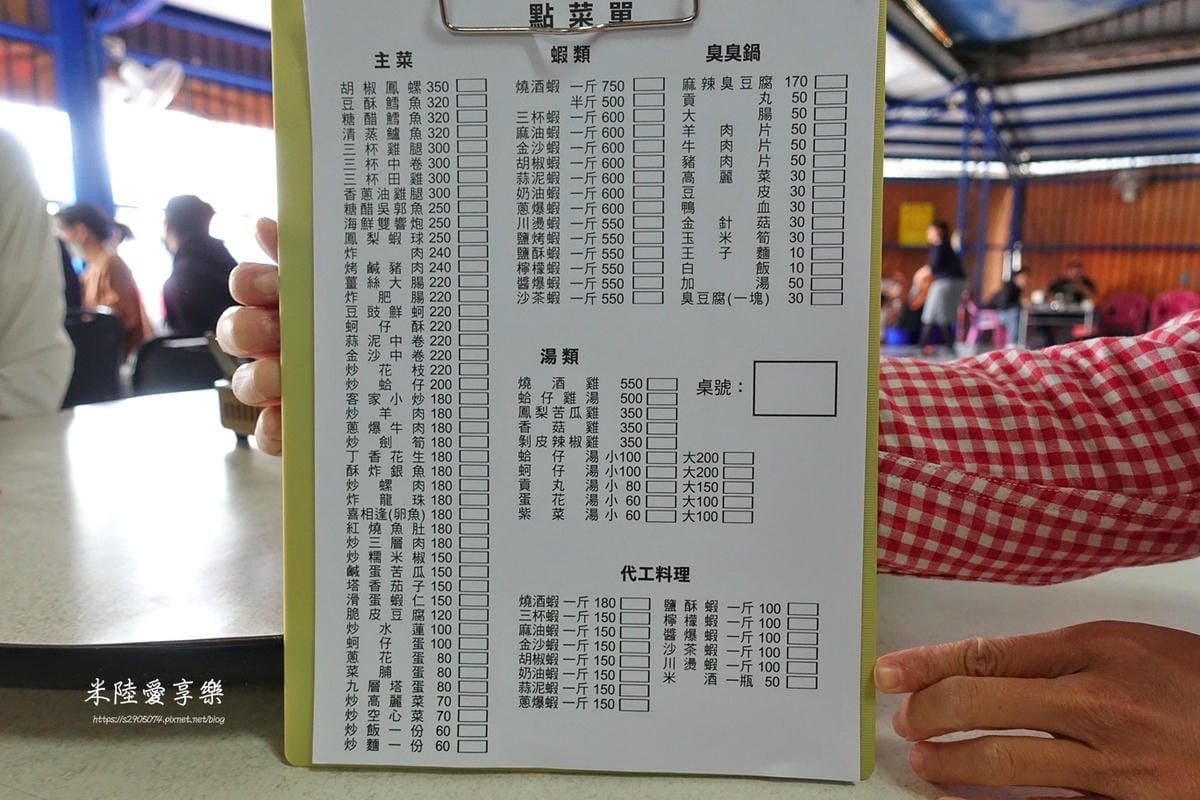 點菜單
主菜
胡椒鳳螺 350
豆酥鱈魚 320
糖醋鱈魚 320
清蒸鱸魚 320
三杯雞腿 300
三杯中卷 300
三杯田雞 300
香蔥油雞腿 300
糖醋吳郭魚 250
海鮮雙響炮 250
鳳梨蝦球 250
炸肉 240
烤鹹豬肉 240
薑絲大腸 220
炸肥腸 220
豆豉鮮蚵 220
蚵仔酥 220
蒜泥中卷 220
金沙中卷 220
炒花枝 220
炒蛤仔 200
客家小炒 180
炒羊肉 180
蔥爆牛肉 180
炒劍筍 180
丁香花生 180
酥炸銀魚 180
炒螺肉 180
炸龍珠 180
喜相逢(卵魚) 180
紅燒魚肚 180
炒三層肉 180
炒糯米椒 150
鹹蛋苦瓜 150
塔香茄子 150
滑蛋蝦仁 150
脆皮豆腐 120
炒水蓮 100
蚵仔蛋 100
蔥花蛋 80
菜脯蛋 80
九層塔蛋 80
炒高麗菜 70
炒空心菜 70
炒飯一份 60
炒麵一份 60
蝦類
燒酒蝦 一斤 750
半斤 500
三杯蝦 一斤 600
麻油蝦 一斤 600
金沙蝦 一斤 600
胡椒蝦 一斤 600
蒜泥蝦 一斤 600
奶油蝦 一斤 600
蔥爆蝦 一斤 600
川燙蝦 一斤 550
鹽烤蝦 一斤 550
鹽酥蝦 一斤 550
檸檬蝦 一斤 550
醬爆蝦 一斤 550
沙茶蝦 一斤 550
臭臭鍋
麻辣臭豆腐 170
貢丸 50
大腸 50
羊肉片 50
牛肉片 50
豬肉片 50
高麗菜 30
豆皮 30
鴨血 30
金針菇 30
玉米筍 30
王子麵 10
白飯 10
加湯 50
臭豆腐(一塊) 30
湯類
燒酒雞 550
蛤仔雞湯 500
鳳梨苦瓜雞 350
香菇雞 350
剝皮辣椒雞 350
蛤仔湯 小100 大200
蚵仔湯 小100 大200
貢丸湯 小 80 大150
蛋花湯 小 60 大100
紫菜湯 小 60 大100
桌號：
代工料理
燒酒蝦 一斤 180
三杯蝦 一斤 150
麻油蝦 一斤 150
金沙蝦 一斤 150
胡椒蝦 一斤 150
奶油蝦 一斤 150
蒜泥蝦 一斤 150
蔥爆蝦 一斤 150
鹽酥蝦 一斤 100
檸檬蝦 一斤 100
醬爆蝦 一斤 100
沙茶蝦 一斤 100
川燙蝦 一斤 100
米酒 一瓶 50
米陸愛享樂
https://s2905074.pixnet.net/blog